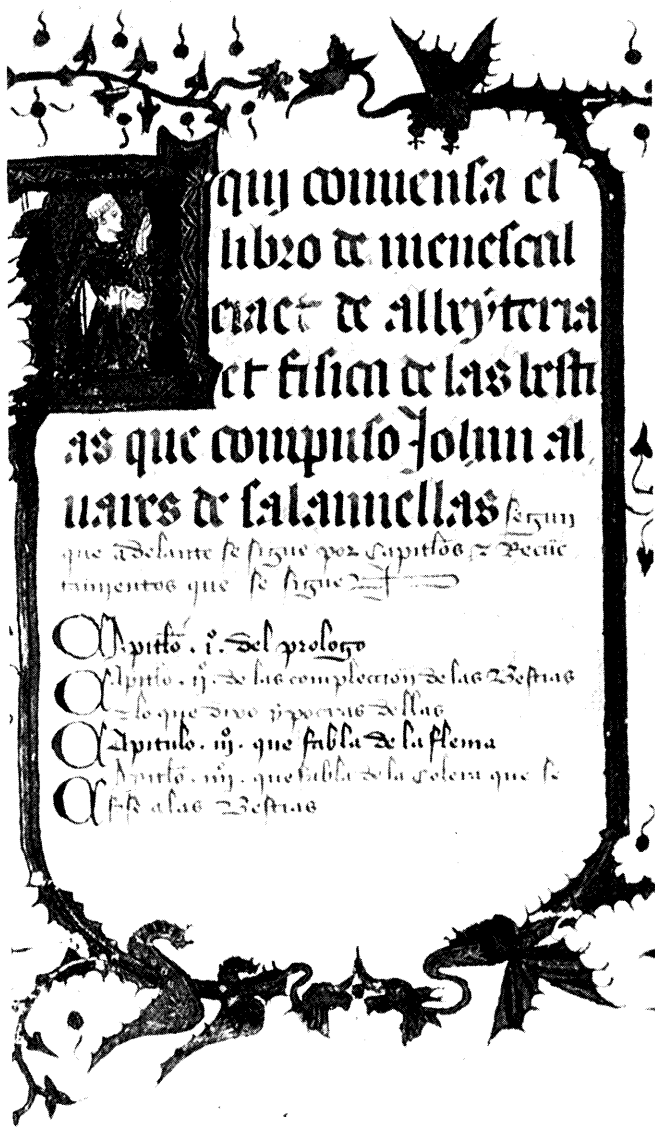 quj comiensa el
libro de menescal
ciaet de albeyteria
et fisica de las besti
as que compuso Johan al
uares de salamiellas segun
que adelante se sigue por capitlos z Recue
tamientos que se sigue
Capitlo . io . del prologo
Capitlo . ijo . de las complecciones de las Bestias
lo que dixo ypocras dellas
Capitulo . iijo . que fabla de la flema
Capitlo . iiijo . que fabla de la Colera que se
fase a las Bestias